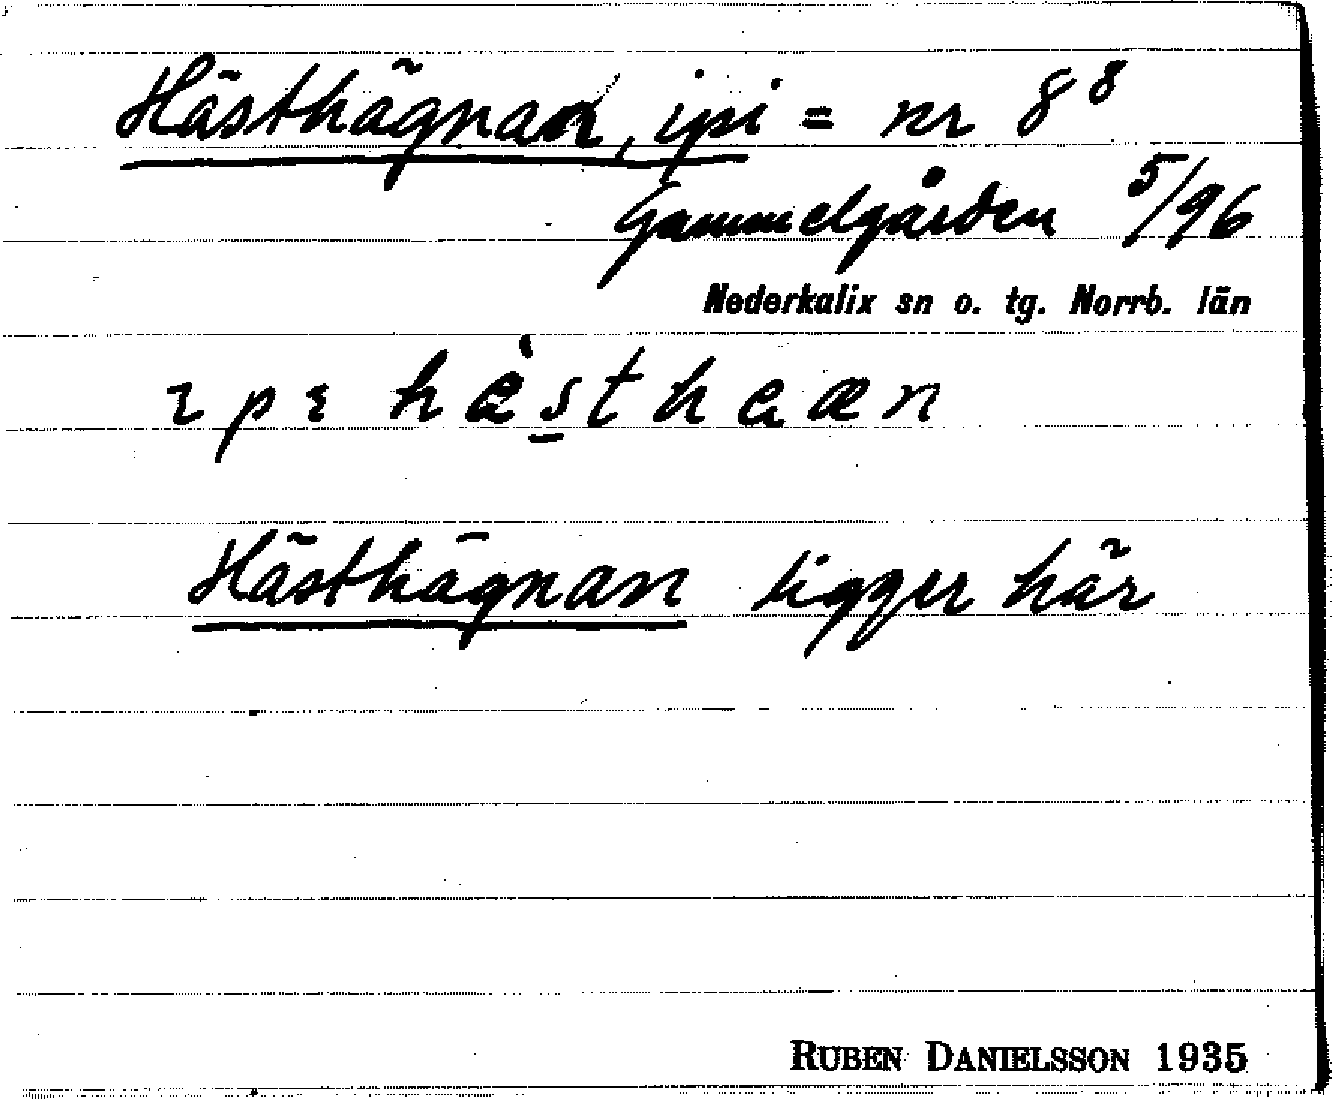 Hästhägnan, ipi = nr 8⁸
Gammelgården 5/96
Nederkalix sn o. tg. Norrb. län
ɩpɩ hæ̀sthaæn
Hästhägnan ligger här
RUBEN DANIELSSON 1935